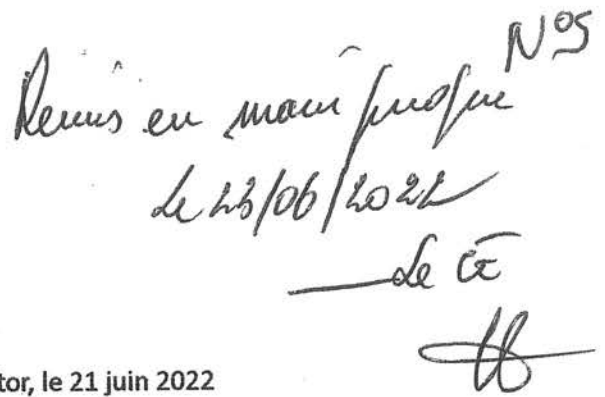 N°5
Remis en main propre
Le 23/06/2022
Le CE
tor, le 21 juin 2022